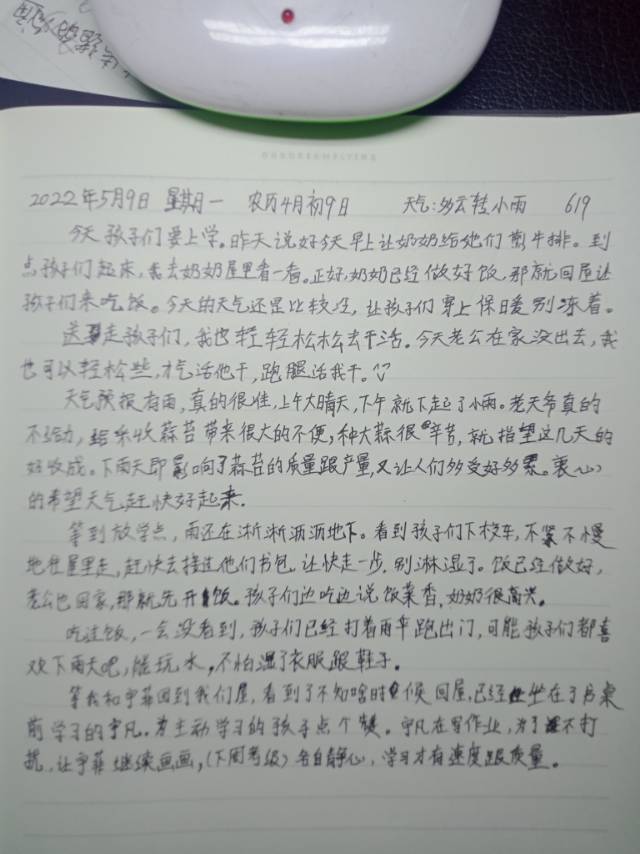 2022年5月9日 星期一 农历4月初9日 天气:多云转小雨 619
今天孩子们要上学。昨天说好今天早上让奶奶给他们煎牛排。到
点孩子们起床,我去奶奶屋里看一看。正好,奶奶已经做好饭,那就回屋让
孩子们来吃饭。今天的天气还是比较冷,让孩子们穿上保暖别冻着。
送走孩子们,我也轻轻松松去干活。今天老公在家没出去,我
也可以轻松些,力气活他干,跑腿活我干。
天气预报有雨,真的很准,上午大晴天,下午就下起了小雨。老天爷真的
不给力,给来收蒜苔带来很大的不便,种大蒜很辛苦,就指望这几天的
好收成。下雨天即影响了蒜苔的质量跟产量,又让人们多受好多累。衷心
的希望天气赶快好起来.
等到放学点,雨还在淅淅沥沥地下。看到孩子们下校车,不紧不慢
地往屋里走,赶快去接过他们书包。让快走一步,别淋湿了。饭已经做好,
老公也回家,那就先开饭。孩子们边吃边说饭菜香,奶奶很高兴。
吃过饭,一会没看到,孩子们已经打着雨伞跑出门,可能孩子们都喜
欢下雨天吧,能玩水,不怕湿了衣服跟鞋子.
等我和宇菲回到我们屋,看到了不知啥时候回屋,已经坐在了书桌
前学习的宇凡。为主动学习的孩子点个赞。宇凡在写作业,为了不打
扰,让宇菲继续画画,(下周考级)各自静心,学习才有速度跟质量。